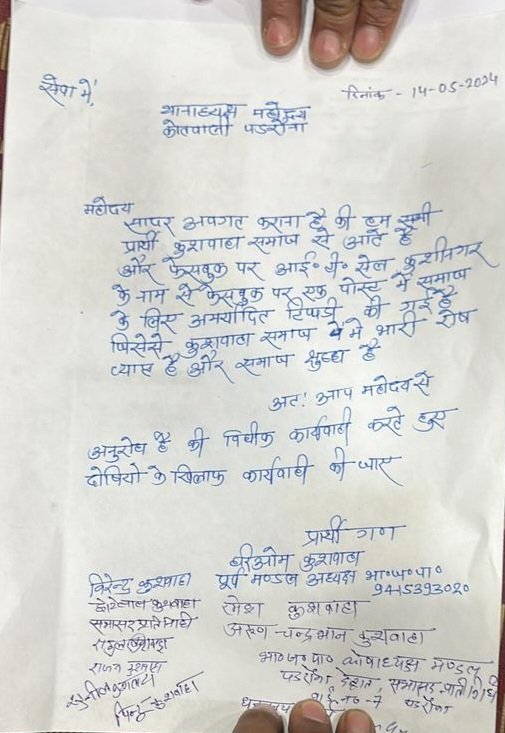 सेवा में,
दिनांक - 14-05-2024
थानाध्यक्ष महोदय
कोतवाली पडरौना
महोदय
सादर अवगत कराना है की हम सभी
प्रार्थी कुशवाहा समाज से आते है
और फेसबुक पर आई॰ टी॰ सेल कुशीनगर
के नाम से फेसबुक पर एक पोस्ट में समाज
के लिए अमर्यादित टिप्पडी की गई है
जिसेसे कुशवाहा समाज में भारी रोष
व्याप्त है और समाज क्षुब्ध है
अतः आप महोदय से
अनुरोध है की विधीक कार्यवाही करते हुए
दोषियो के खिलाफ कार्यवाही की जाए
प्रार्थी गण
हरीओम कुशवाहा
पूर्व मण्डल अध्यक्ष भा॰ज॰पा॰
9415393020
विरेन्द्र कुशवाहा
छोटेलाल कुशवाहा
रमेश कुशवाहा
सभासद प्रतिनिधी
अरुण चन्द्रभान कुशवाहा
राजन कुशवाहा
भा॰ज॰पा॰ कोषाध्यक्ष मण्डल
पडरौना देहात, सभासद प्रतिनिधि
सुनील कुशवाहा
वार्ड न॰-7 पडरौना
पिन्टू कुशवाहा